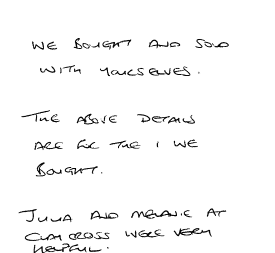 WE BOUGHT AND SOLD
WITH YOURSELVES.
THE ABOVE DETAILS
ARE FOR THE 1 WE
BOUGHT.
JULIA AND MELANIE AT
CLAY CROSS WERE VERY
HELPFUL.